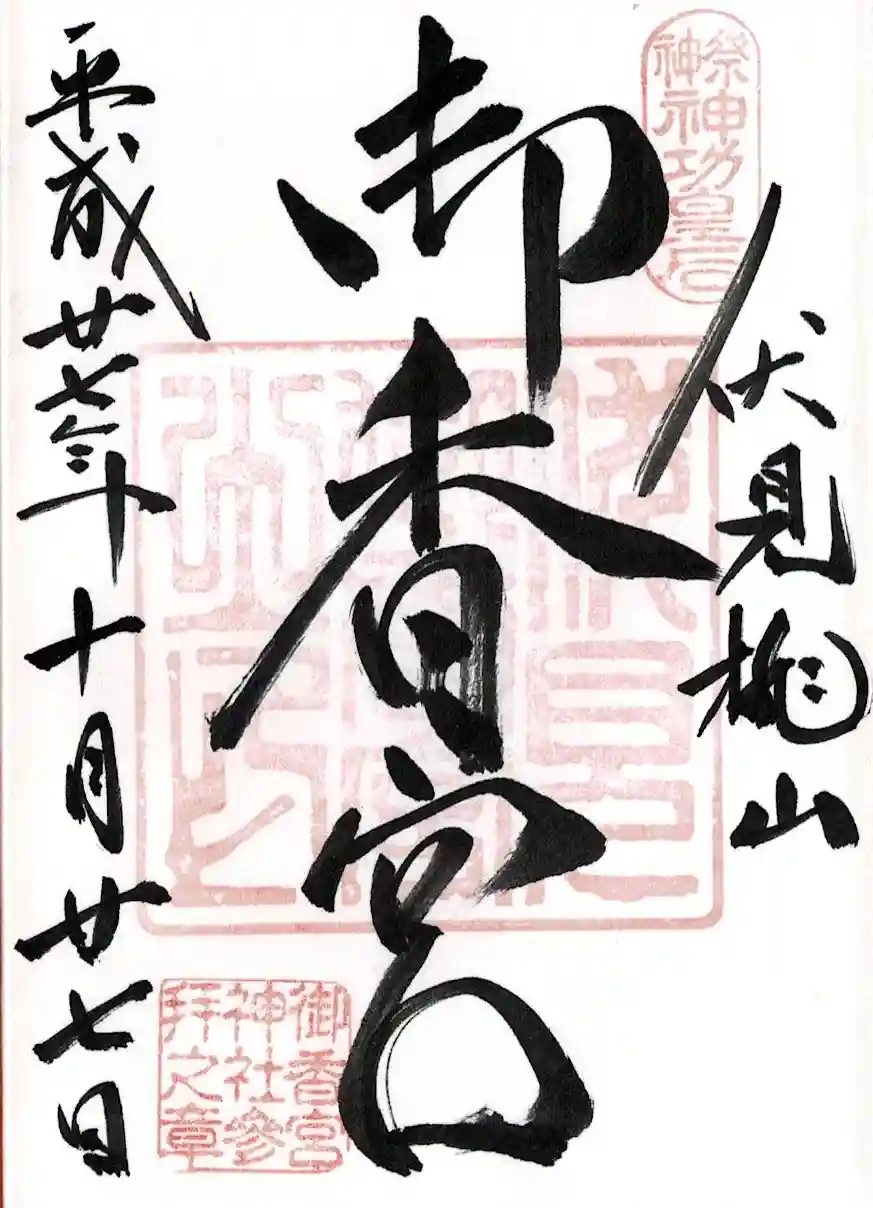 祭神
神功皇后
伏見桃山
御香宮
御香宮
神社參
拜之章
平成廿七年十月廿七日